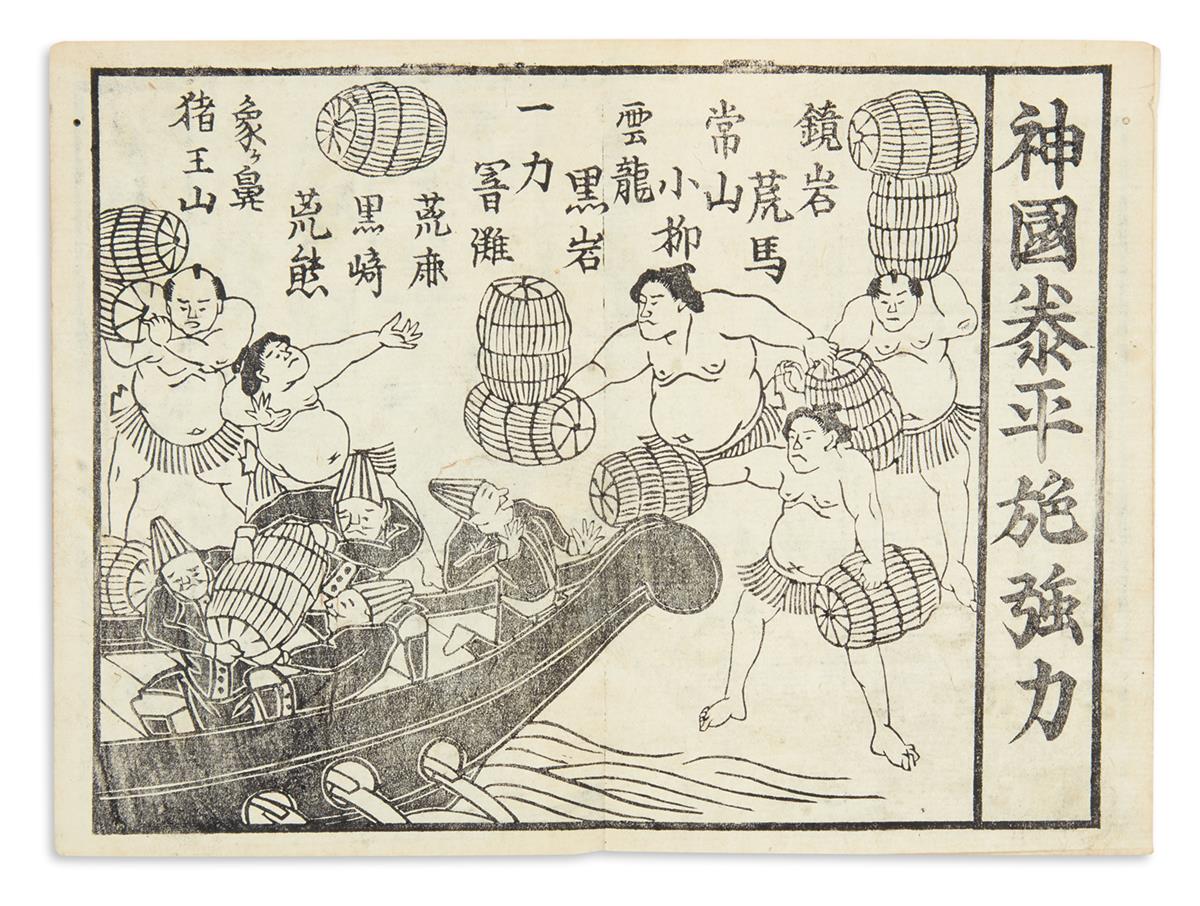 神國泰平施強力
鏡岩
荒馬
常山
小柳
雲龍
黒岩
一力
響灘
黒崎
荒熊
象ヶ鼻
猪王山